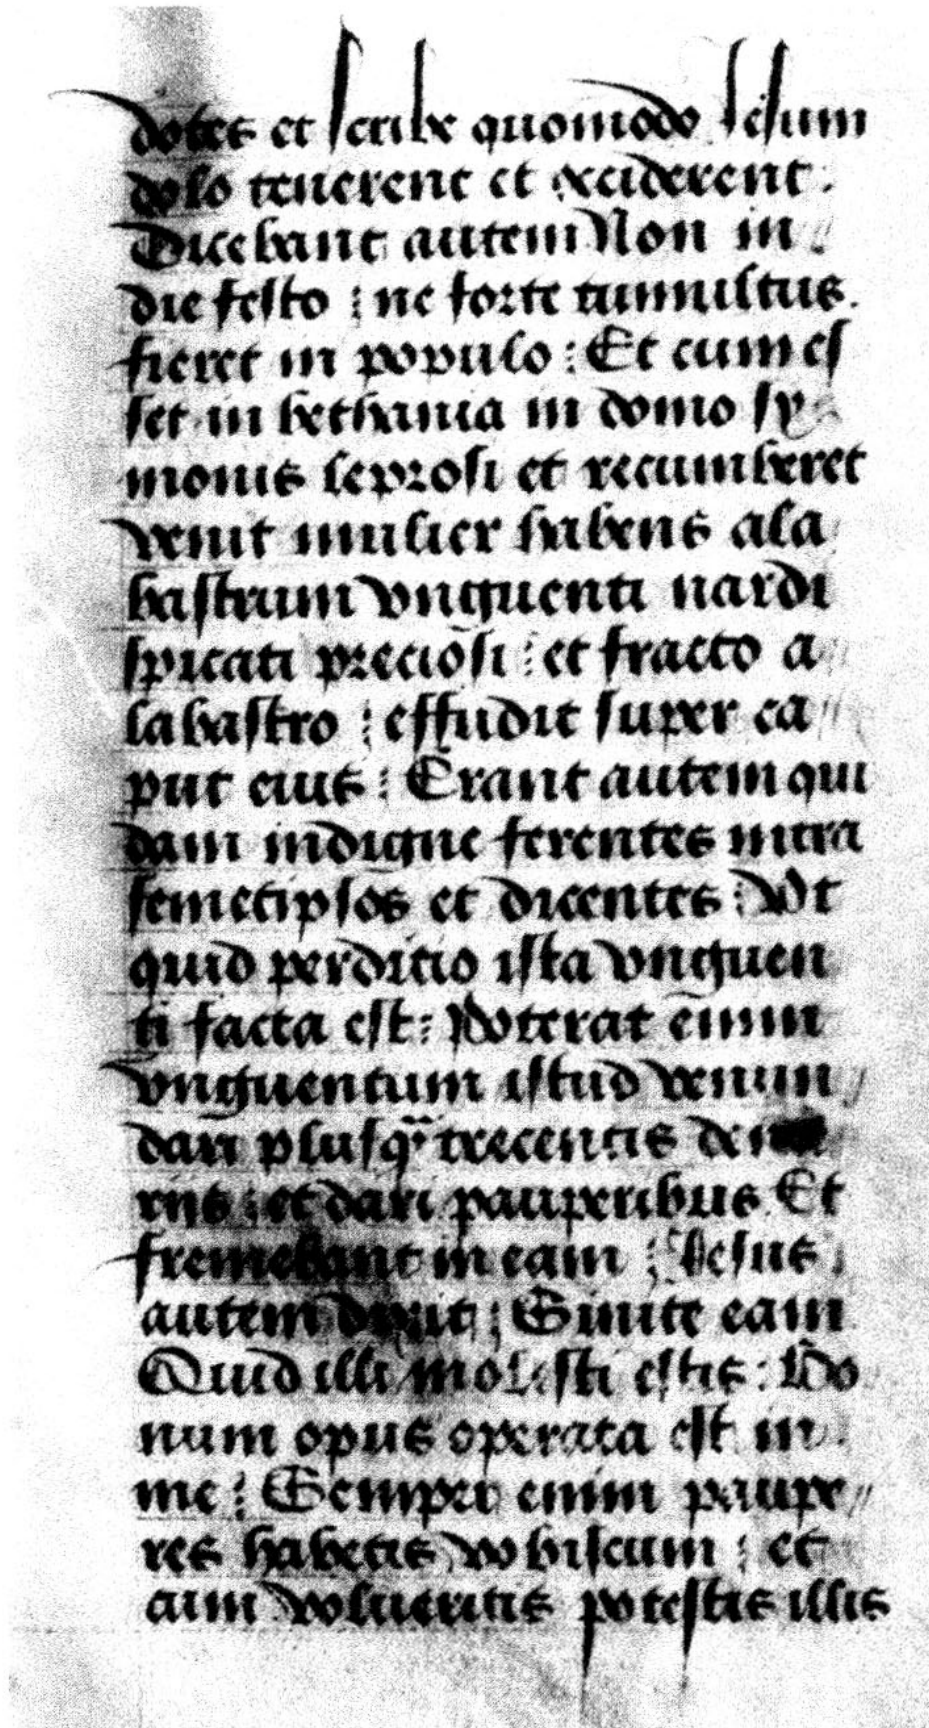 dotes et scribe quomodo Iesum
dolo tenerent et occiderent :
Dicebant autem Non in //
die festo : ne forte tumultus.
fieret in populo : Et cum es
set in bethania in domo sy
monis leprosi et recumberet
venit mulier habens ala
bastrum vnguenti nardi
spicati preciosi : et fracto a//
labastro : effudit super ca//
put eius : Erant autem qui
dam indigne ferentes intra
semetipsos et dicentes : Vt
quid perditio ista vnguen
ti facta est : Poterat enim
vnguentum istud venun/
dari plusq̃ trecentis dena
rijs : et dari pauperibus Et
fremebant in eam : Iesus
autem dixit : Sinite eam
Quid illi molesti estis : Bo
num opus operata est in
me : Semper enim paupe//
res habetis vobiscum : et
cum volueritis potestis illis